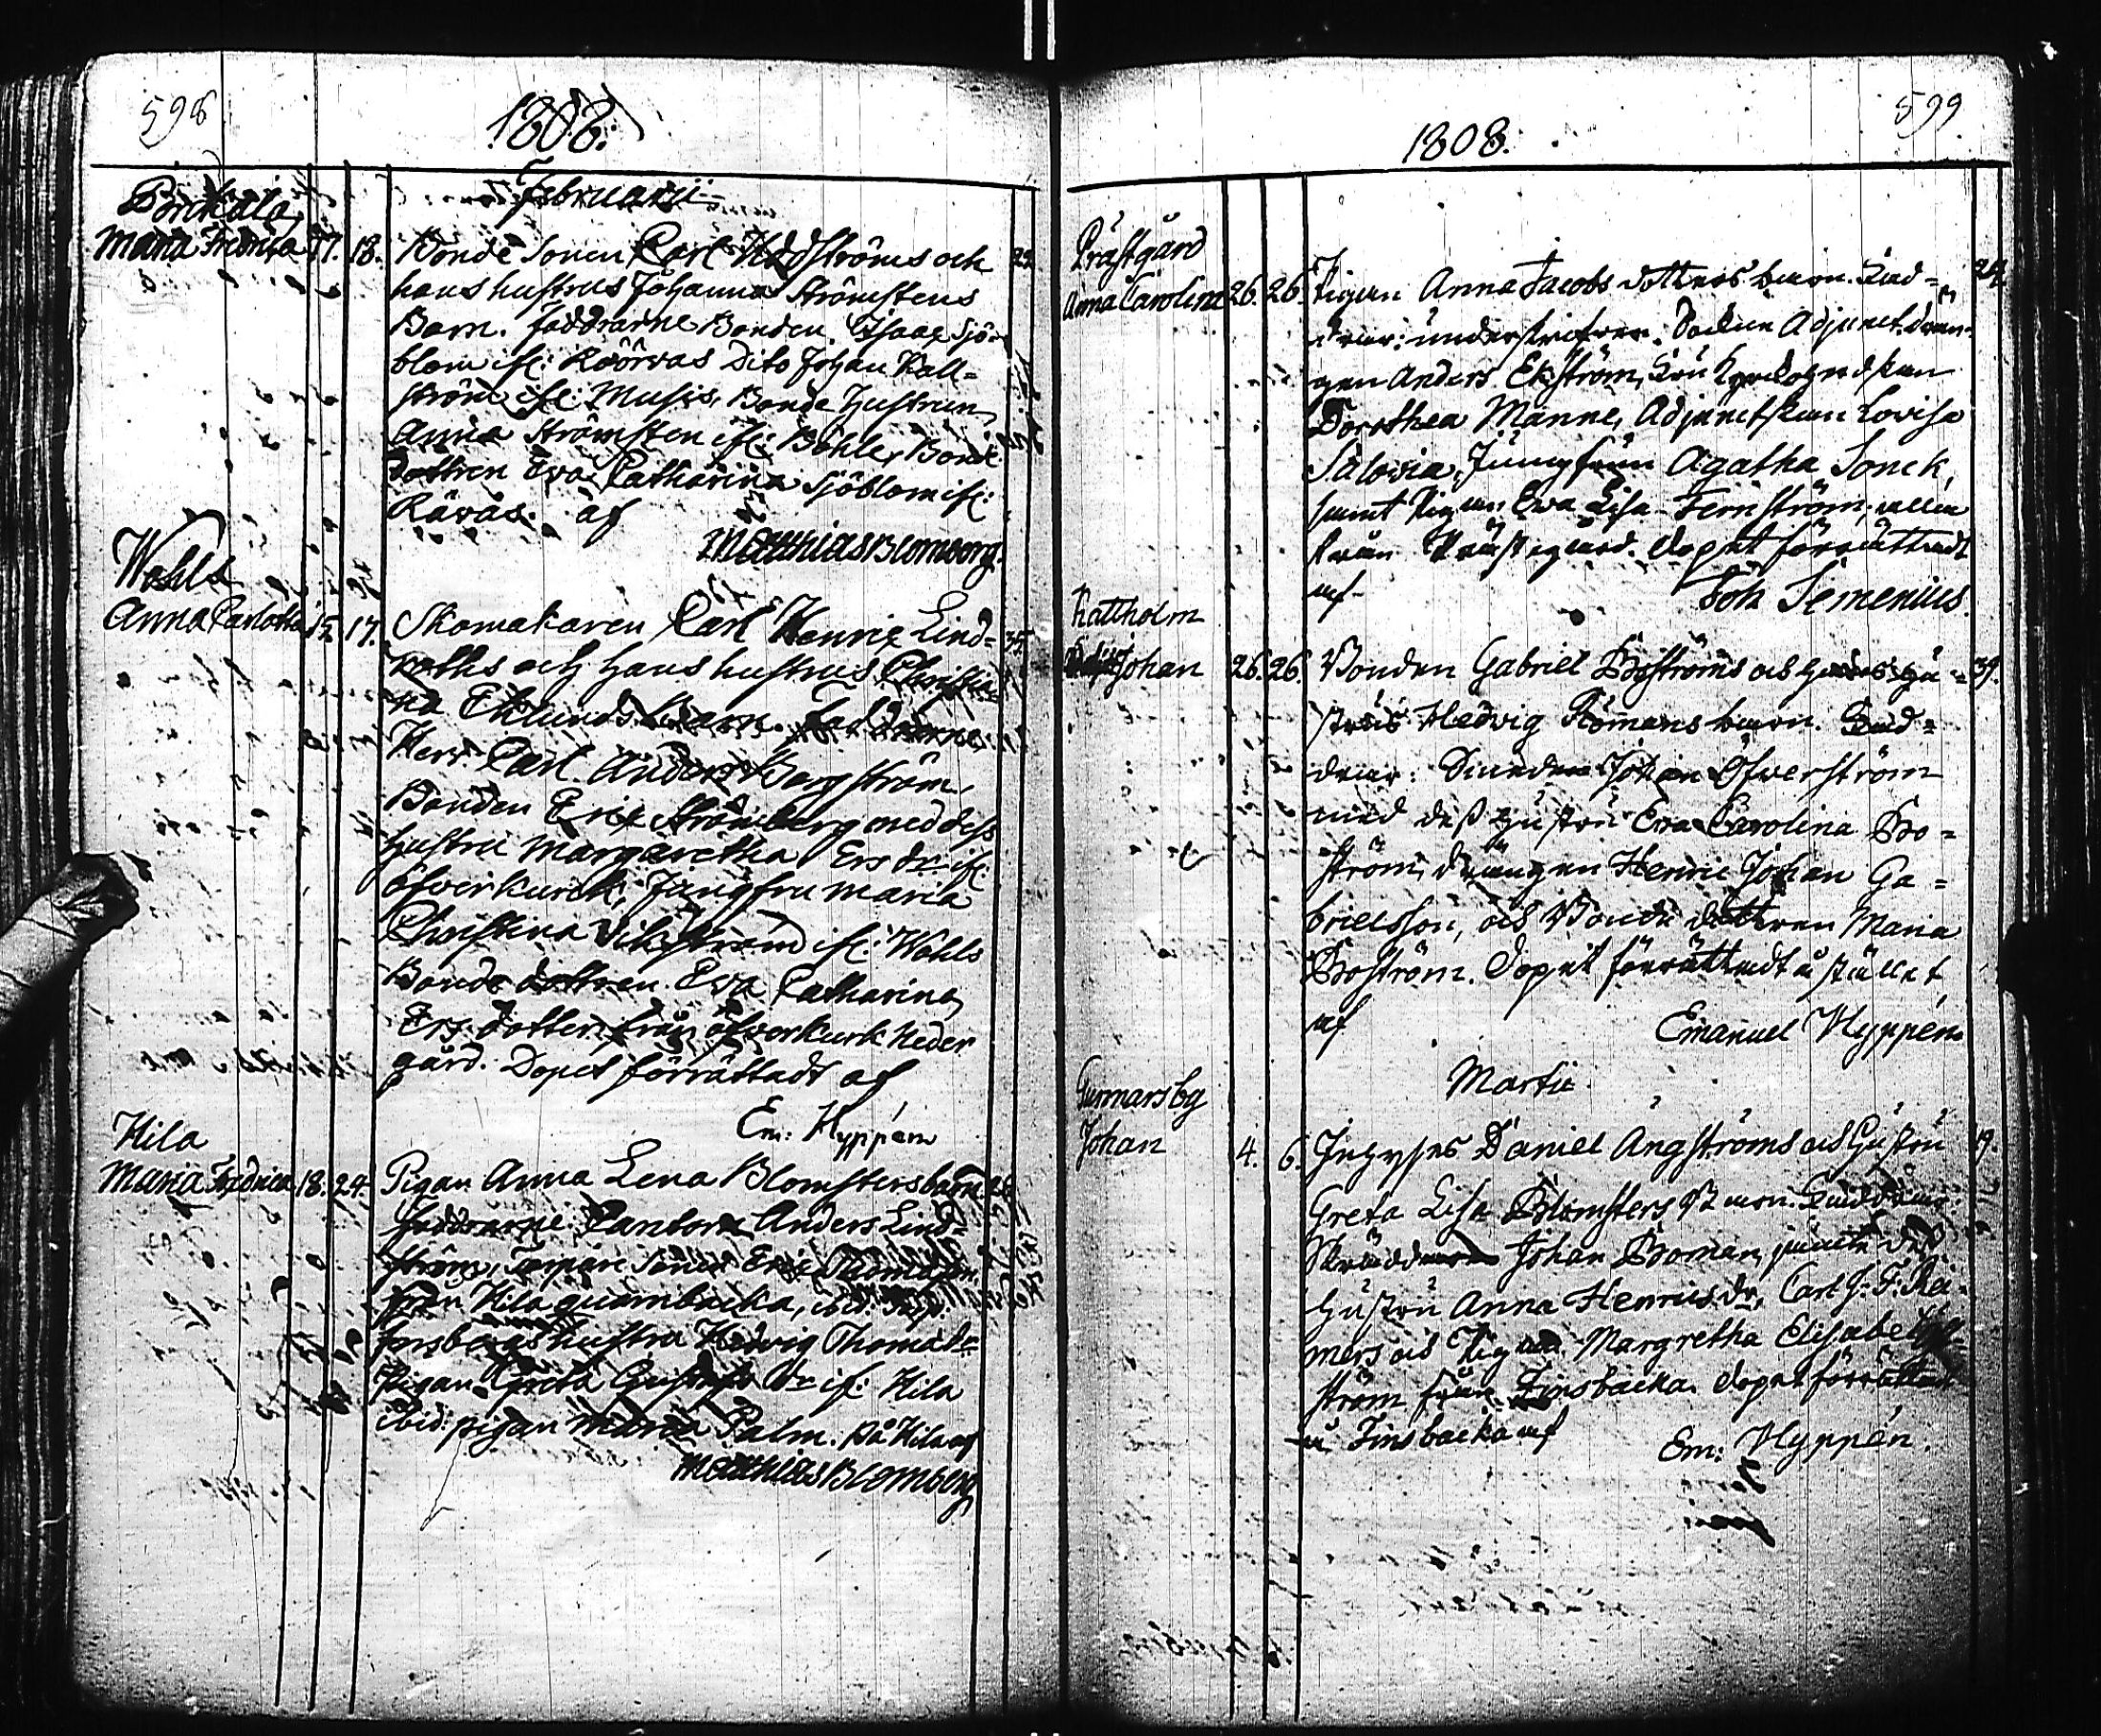 598
1808.
Februarii
Böckala,
Maria Fredrica 17. 18. Bonde Sonen Carl Hadströms och 22
hans hustrus Johanna Strömstens
Barn. faddrarne Bonden Isaac Sjö-
blom ifr: Röövas Dito Johan Kall-
ström ifr: Musis, Bonde Hustrun
Anna Strömsten ifr: Böhle, Bonde
dottren Eva Catharina Sjöblom ifr:
Rävås. af
Matthias Blomborg.
Wohls
Anna Carlotta 15. 17. Skomakaren Carl Henric Lind- 35.
roths och hans hustrus Christi-
na Eklunds Barn. Faddrarne
Herr Carl Anders Bergström,
Bonden Eric Strömberg med dess
hustru Margaretha Ers dr ifr:
öfverkurck, Jungfru Maria
Christina Vikström ifr: Wohls
Bonde dottren Eva Catharina
Ers dotter från öfverkurk Neder
gård. Dopet förrättadt af
Em: Hyppén
Hila
Maria Fredrica 18. 24. Pigan Anna Lena Blomsters barn
faddrarne Cantorn Anders Lind-
ström, Sonen Eric
från Hila quarnbacka, ibid.
hustru Hedvig Thomædr
Pigan Greta Gustafs dr ifr: Hila
ibid. pigan Maria Palm. på Hila af
Matthias Blomborg
599
1808.
Prästgård
Anna Carolina 26. 26. Pigan Anna Jacobs dotters barn. Fad-
drar: underskrifven Socken Adjunct. drän-
gen Anders Ekström, Fru
Dorothea Manne, Adjunctskan Lovisa
Salovia, Jungfrun Agatha Sonck,
samt Pigan Eva Lisa Fernström, alla
från Prästegård. dopet förrättadt
af Joh Semenius.
Kattholm
Johan 26. 26. Bonden Gabriel Boströms och hans Hu- 39.
strus Hedvig Romans barn. Fad-
drar: Johan Öfverström
med dess Hustru Eva Carolina Bo-
ström, drängen Henric Johan Ga-
brielsson, och Bonde dottren Maria
Boström. dopet förrättadt å stället
af Emanuel Hyppén
Martii
Gunnarsby
Johan 4. 6. Daniel Ångströms och Hustru 19.
Greta Lisa Blomsters Barn. Faddrar:
Skräddaren Johan Boman, jemte dess
Hustru Anna Henricsdr, Carl J: F: Rei-
mers och Pigan Margretha Elisabeth
ström från Finsbacka. dopet förrättadt
å Finsbacka af Em: Hyppén.